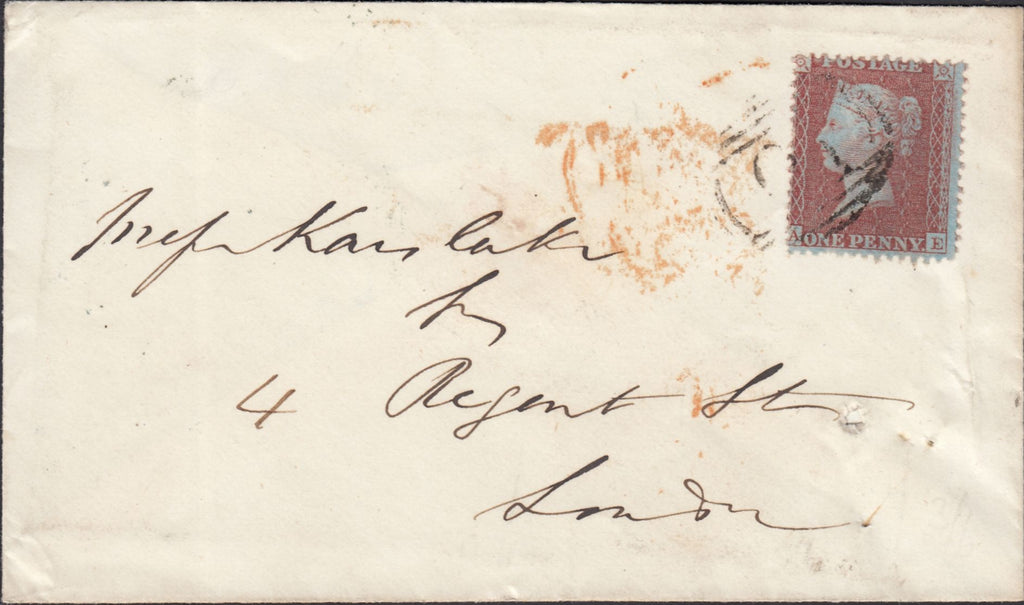 POSTAGE
ONE PENNY E
Karslake
4 Regent St
London